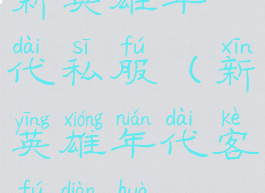 新英雄年
dài sī fú xīn
代私服(新
yīng xióng nián dài kè
英雄年代客
fú diàn huà